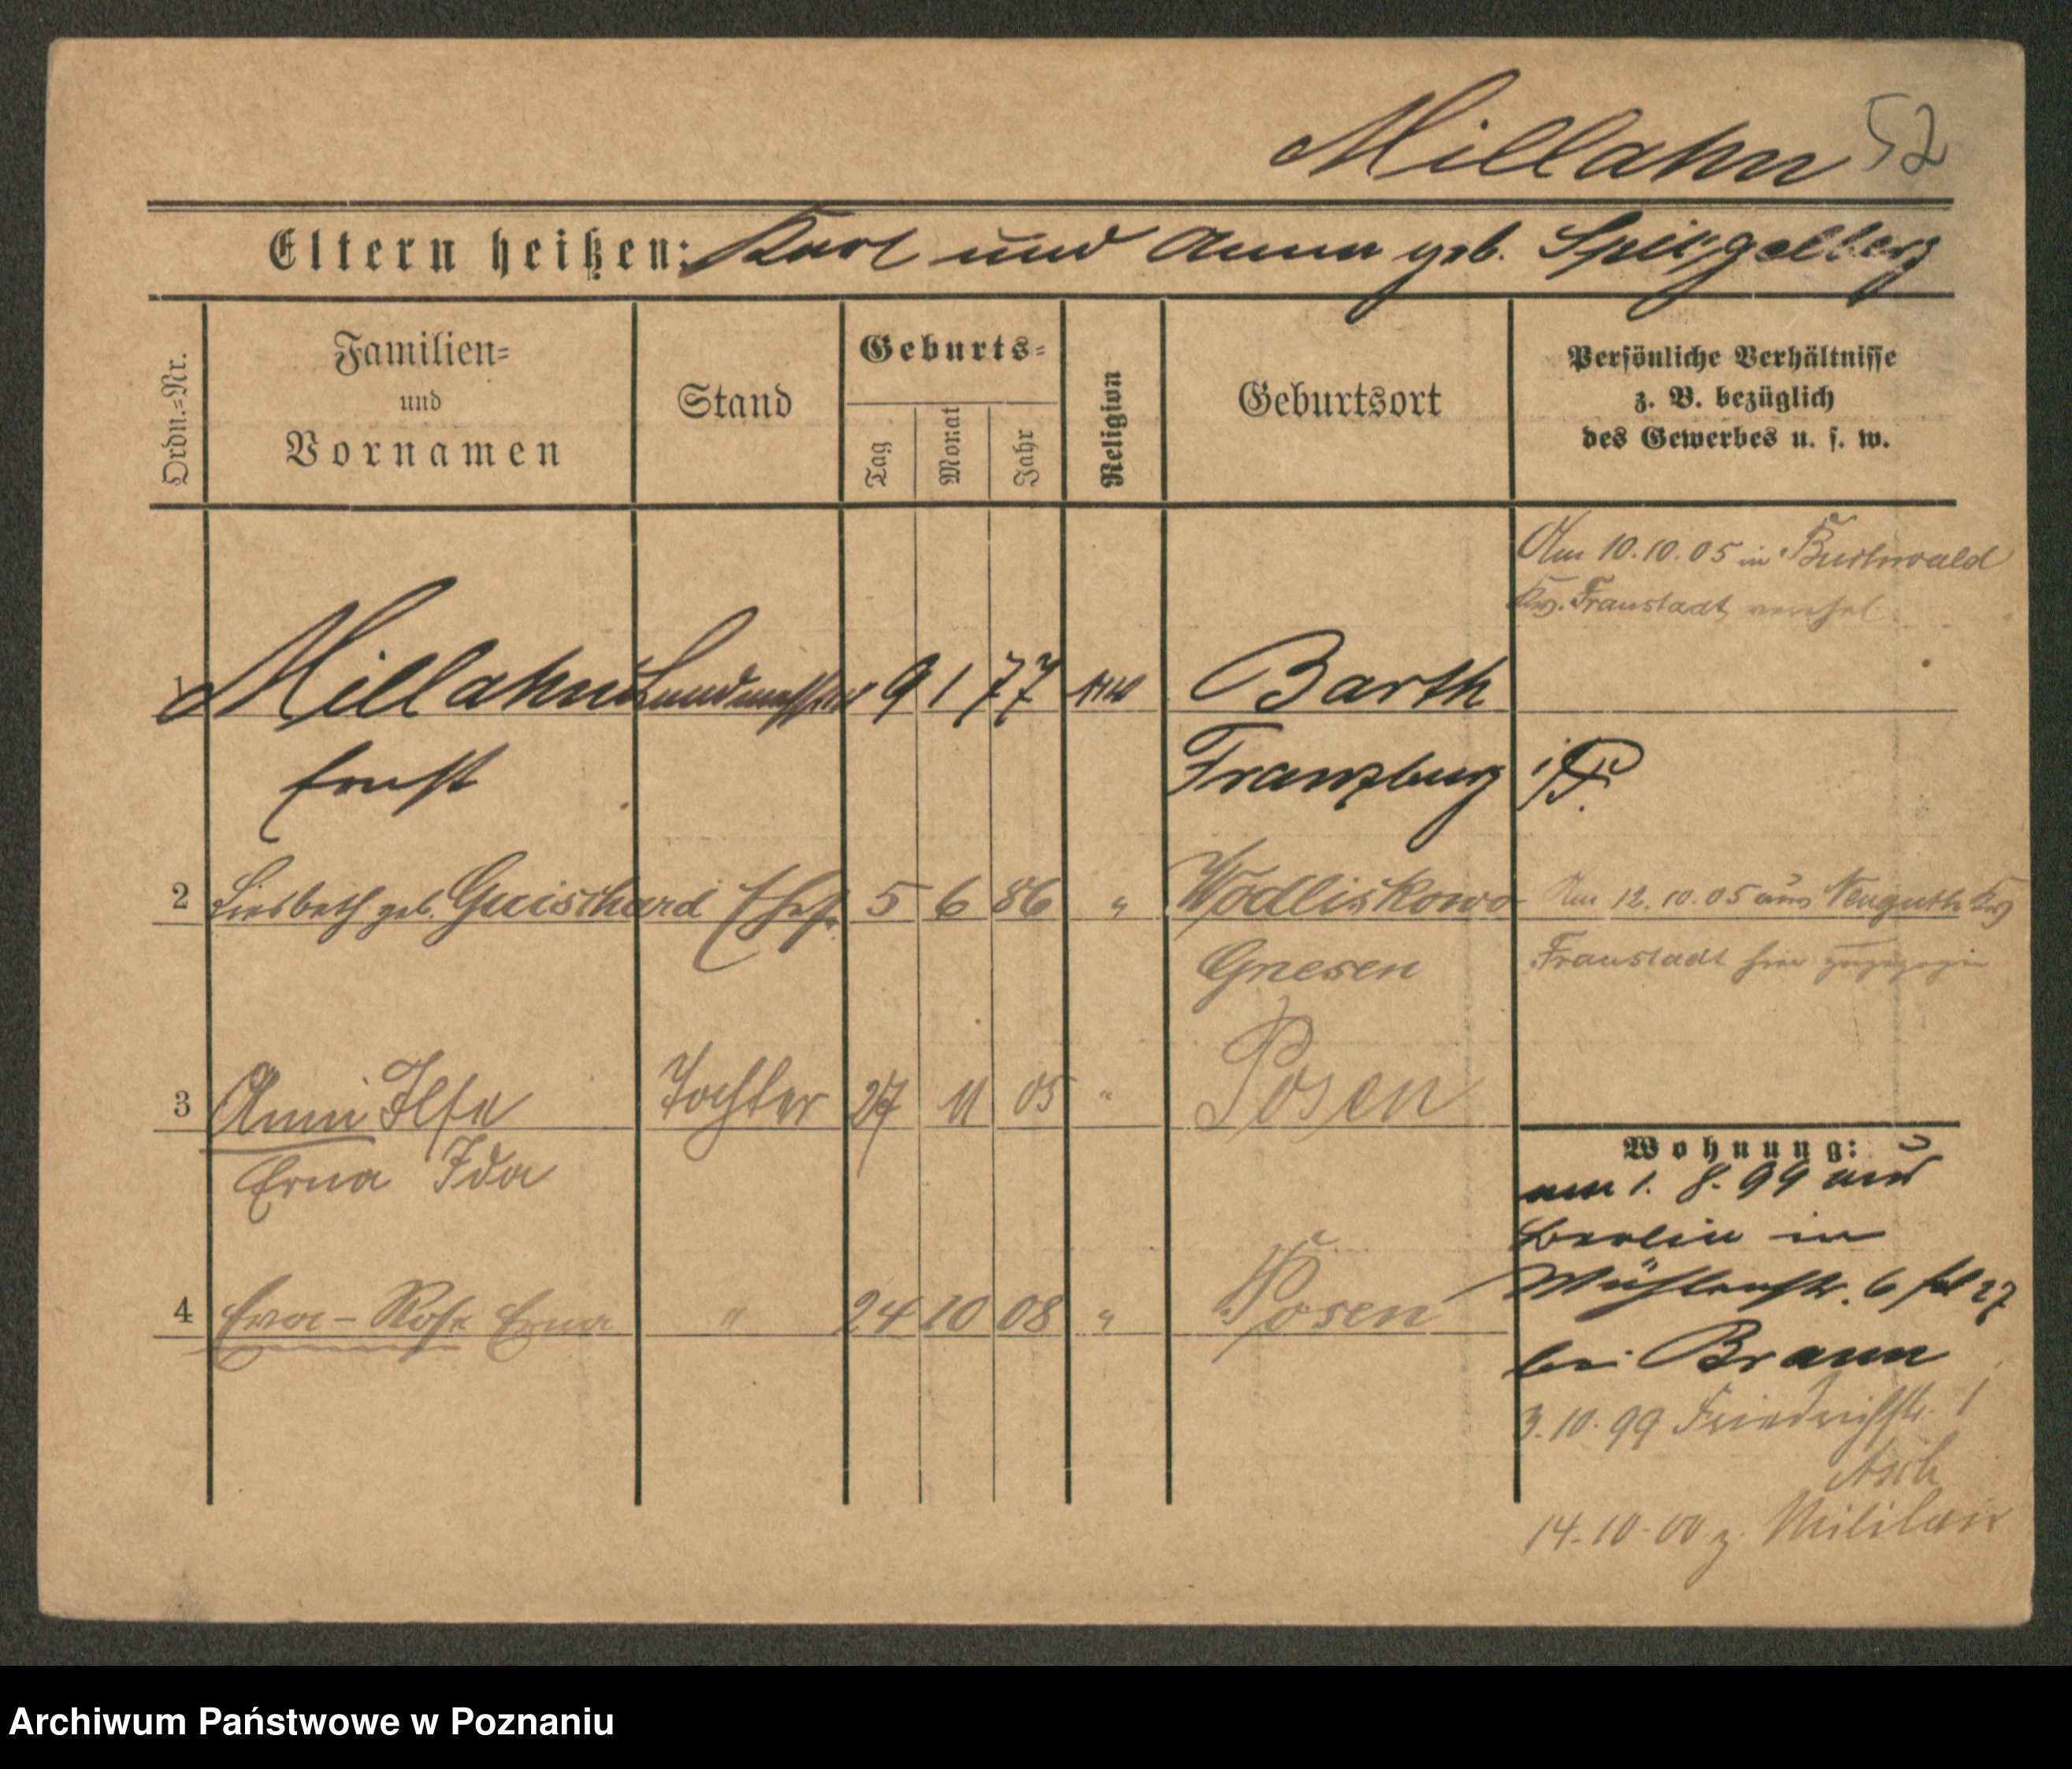 Millahn 52
Eltern heißen: Karl und Anna geb. Spiegelberg
Ordn.=Nr.
Familien=
und
Vornamen
Stand
Geburts=
Tag
Monat
Jahr
Religion
Geburtsort
Persönliche Verhältnisse
z. B. bezüglich
des Gewerbes u. s. w.
Am 10.10.05 in Buchwald
Kr. Fraustadt verehel
1 Millahn Landmesser 9 1 77 Barth
Ernst Franzburg
2 Liesbeth geb. Guischard Ehefr 5 6 86 " Wodliskowo Am 12.10.05 aus Neuguth Kr
Gnesen Fraustadt hier zugezogen
3 Anni Ilse Tochter 27 11 05 " Posen
Erna Ida
Wohnung:
am 1. 8. 99 aus
Berlin in
Mühlenstr. 6
4 Eva - Rose Erna " 24 10 08 " Posen
bei Braun
3.10.99 Friedrichstr. 1
Asch
14-10-00 z. Militair
Archiwum Państwowe w Poznaniu